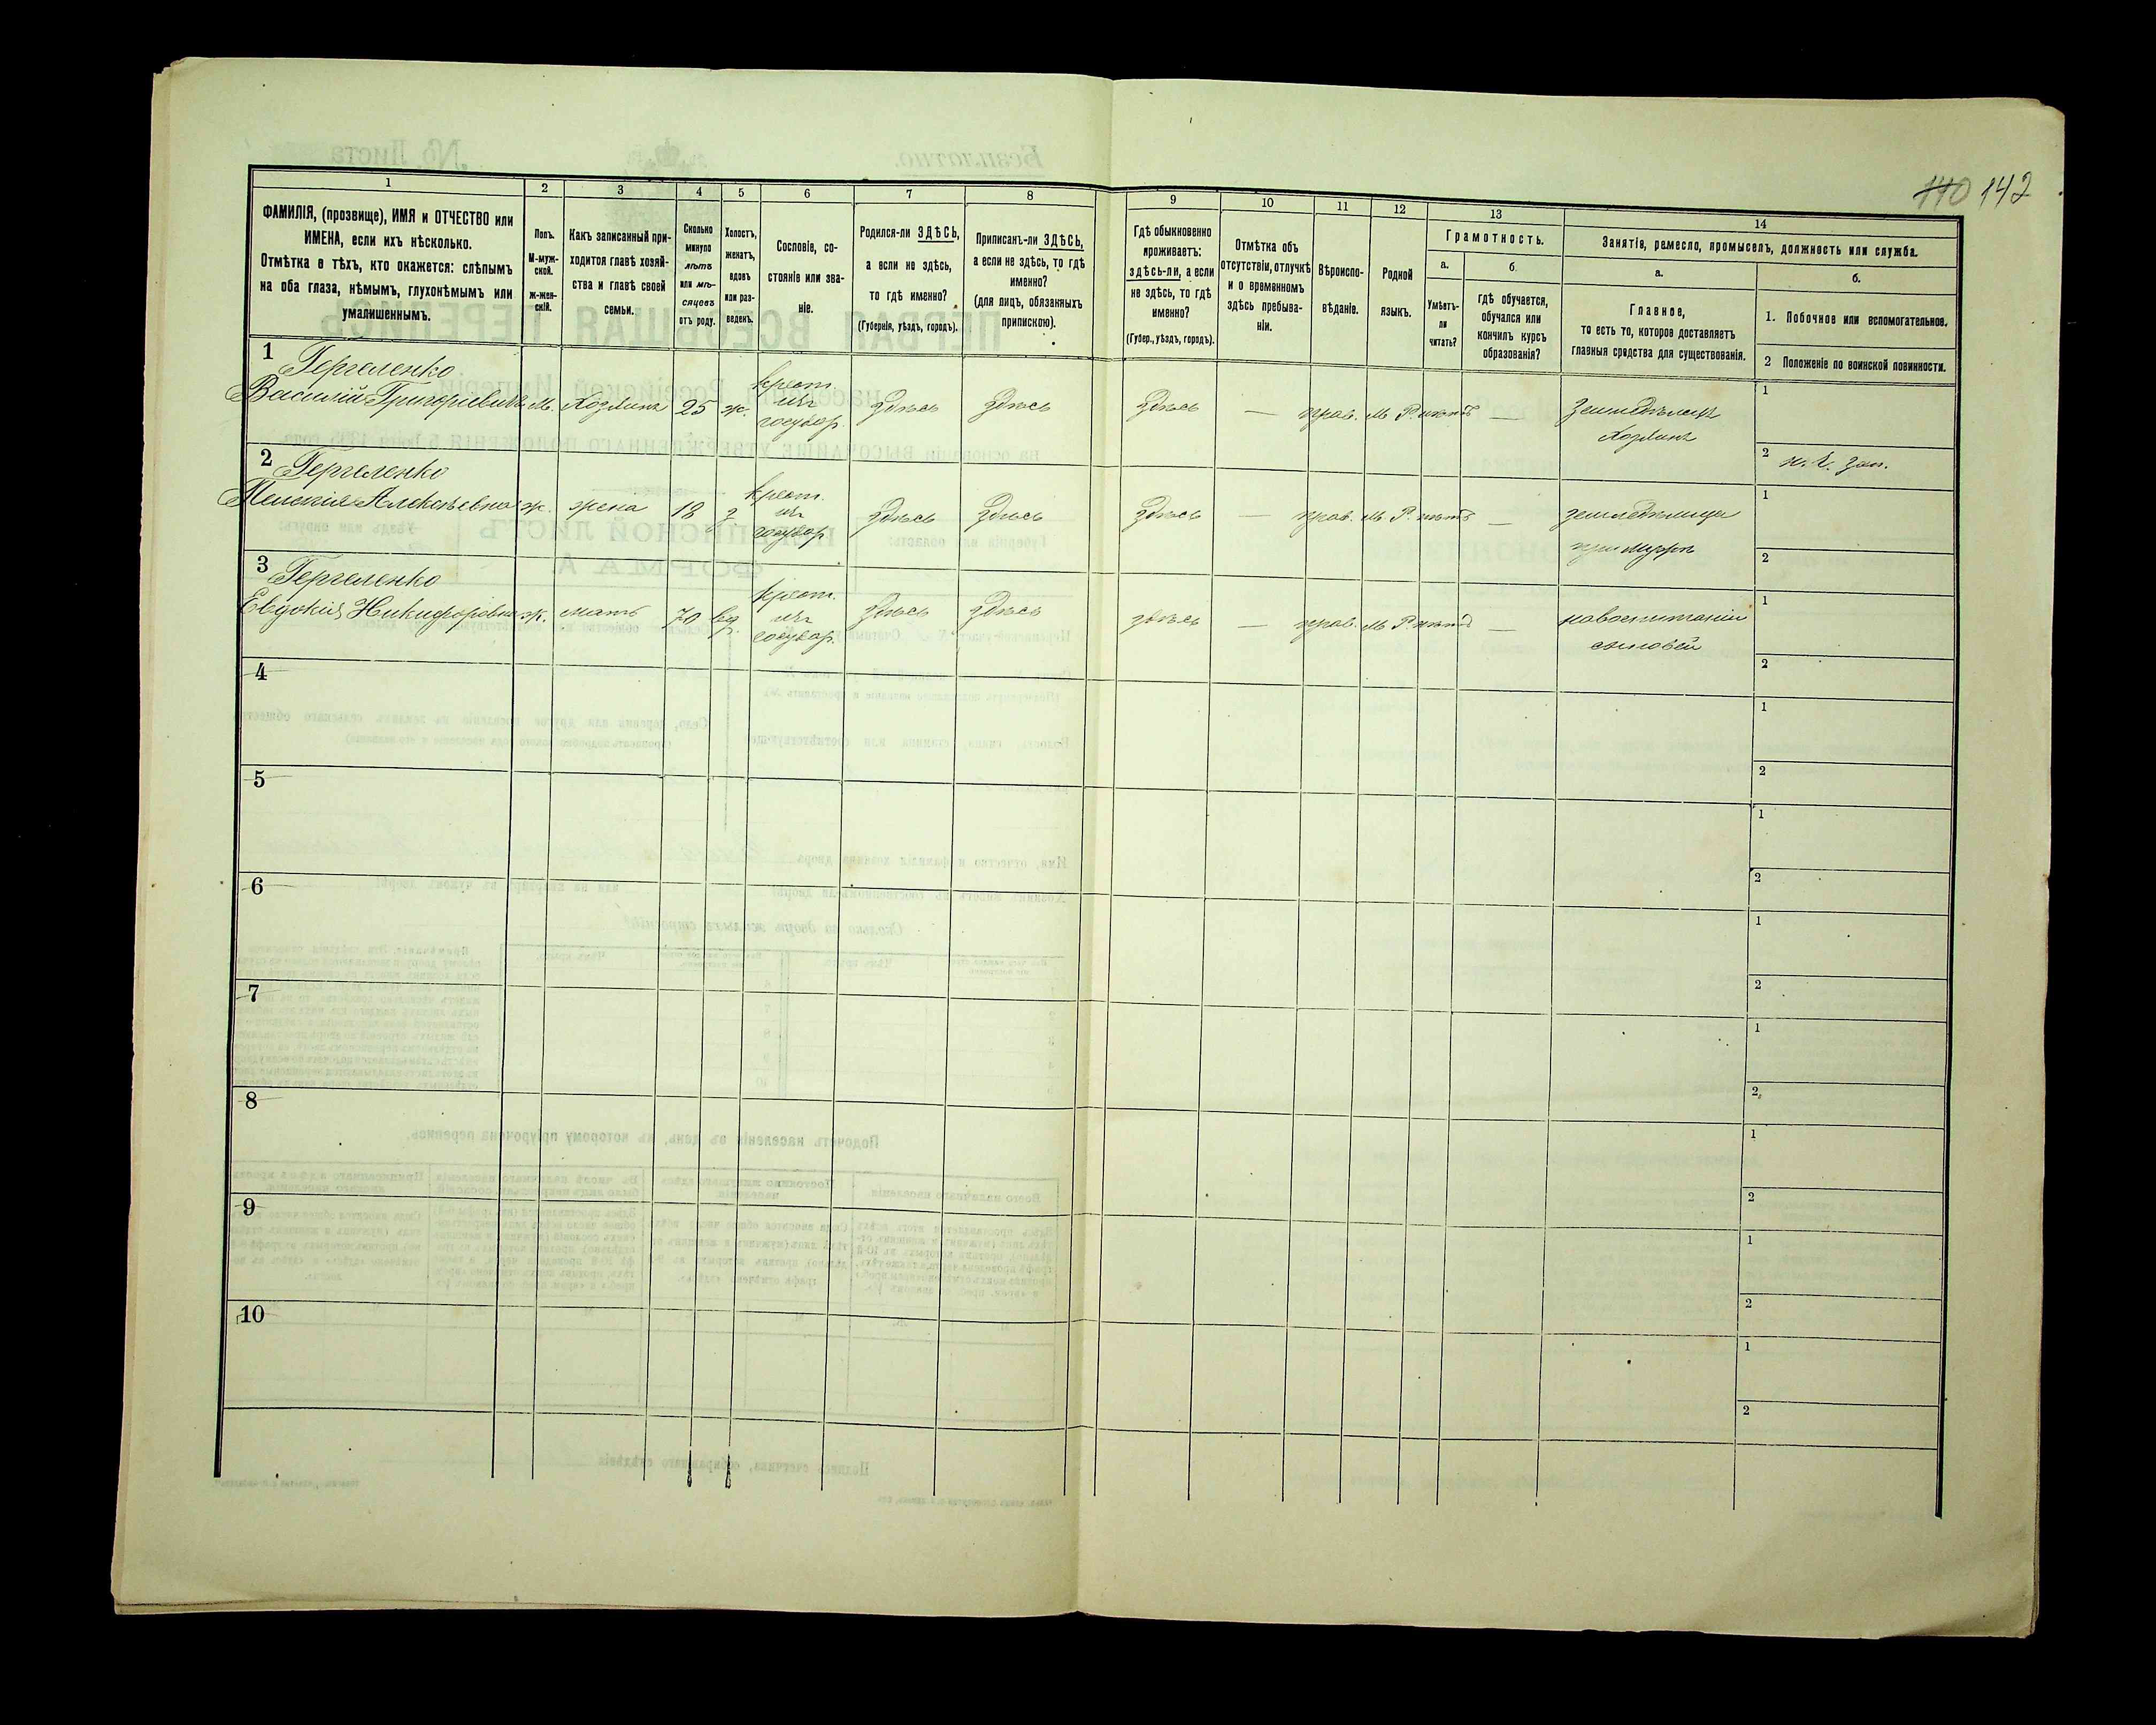 110 142
1
2
3
4
5
6
7
8
9
10
11
12
13
14
ФАМИЛІЯ, (прозвище), ИМЯ и ОТЧЕСТВО или
ИМЕНА, если ихъ нѣсколько.
Отмѣтка о тѣхъ, кто окажется: слѣпымъ
на оба глаза, нѣмымъ, глухонѣмымъ или
умалишеннымъ.
Полъ.
М-муж-
ской.
ж-жен-
скій.
Какъ записанный при-
ходится главѣ хозяй-
ства и главѣ своей
семьи.
Сколько
минуло
лѣтъ
или мѣ-
сяцевъ
отъ роду.
Холостъ,
женатъ,
вдовъ
или раз-
веденъ.
Сословіе, со-
стояніе или зва-
ніе.
Родился-ли ЗДѢСЬ,
а если не здѣсь,
то гдѣ именно?
(Губернія, уѣздъ, городъ).
Приписанъ-ли ЗДѢСЬ,
а если не здѣсь, то гдѣ
именно?
(для лицъ, обязанныхъ
припискою).
Гдѣ обыкновенно
проживаетъ:
здѣсь-ли, а если
не здѣсь, то гдѣ
именно?
(Губер., уѣздъ, городъ).
Отмѣтка объ
отсутствіи, отлучкѣ
и о временномъ
здѣсь пребыва-
ніи.
Вѣроиспо-
вѣданіе.
Родной
языкъ.
Грамотность.
а.
Умѣетъ-
ли
читать?
б.
гдѣ обучается,
обучался или
кончилъ курсъ
образованія?
Занятіе, ремесло, промыселъ, должность или служба.
а.
Главное,
то есть то, которое доставляетъ
главныя средства для существованія.
б.
1. Побочное или вспомогательное.
2 Положеніе по воинской повинности.
1 Гергеленко
Василій Григоріевичъ М. Хозяинъ 25 ж. крест. изъ государ. здѣсь здѣсь здѣсь — прав. М. Р. нѣтъ — земледѣлецъ
хозяинъ
1
2
2 Гергеленко
Алексѣевна ж. жена 18 з крест. изъ государ. здѣсь здѣсь здѣсь — прав. М. Р. нѣтъ —
при мужѣ
1
2
3 Гергеленко
Евдокія Никифоровна ж. мать 70 вд. крест. изъ государ. здѣсь здѣсь здѣсь — прав. М. Р. нѣтъ —
сыновей
1
2
4
1
2
5
1
2
6
1
2
7
1
2
8
1
2
9
1
2
10
1
2